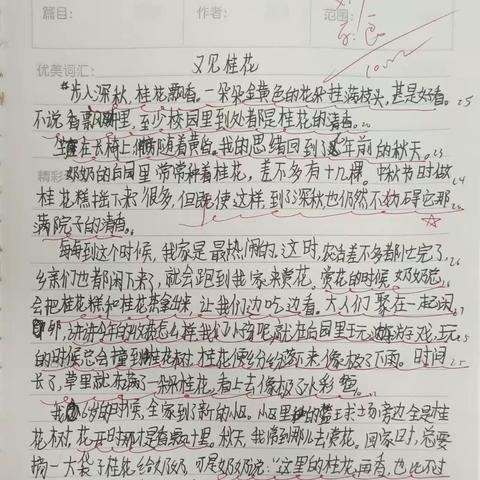 篇目： 作者： 范围：
优美词汇：
又见桂花
步入深秋，桂花飘香。一朵朵金黄色的花朵挂满枝头，甚是好看。 25
不说香飘十里，至少校园里到处都是桂花的清香。
坐在长椅上，伴随着黄白。我的思绪回到了年前的秋天。
奶奶的白园里常常种着桂花，差不多有十几棵。中秋节时做 24
精彩
桂花糕摇下来很多，但既使这样，到了深秋也仍然不妨碍它那
满院子的清香。
每每到这个时候，我家是最热闹的。这时，农活差不多都忙完了， 26
乡亲们也都闲下来了，就会跑到我家来赏花。赏花的时候，奶奶总
会把桂花糕和桂花茶拿出来，让我们边吃边看。大人们聚在一起闲
聊，讲讲今年的收成怎么样，我们小孩呢，就在白园里玩游戏，玩
的时候总会撞到桂花树，桂花便纷纷落下来，像极了下雨。时间 25
长了，草里就布满了一朵朵桂花，看上去像极了水彩
我 的时候，全家到了新的小区。小区里的 球场旁边全是桂
花树，花开时那才是香飘十里。秋天，我常到那儿去赏花。回家时，总要
摘一大袋子桂花给奶奶，可是奶奶说：“这里的桂花再香，也比不过